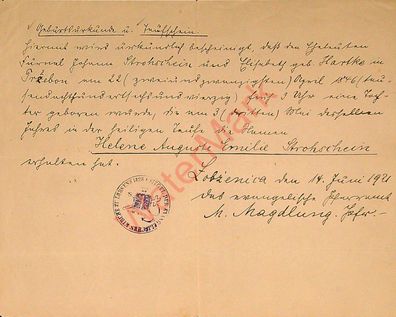 Geburtsurkunde u. Taufschein
Hiermit wird urkundlich bescheinigt, daß den Eheleuten
Johann Strohschein und Elisabeth geb. Hartke in
am 22 (zweiundzwanzigsten) April 1846 (tau-
sendachthundertsechsundvierzig) Uhr eine Toch-
ter geboren wurde, die am 3 (dritten) Mai desselben
Jahres in der heiligen Taufe die Namen
Helene Auguste Emilie Strohschein
erhalten hat.
Łobżenica den 14. Juni 1921
das evangelische Pfarramt
M. Magdlung. Pfr.
NotarMark